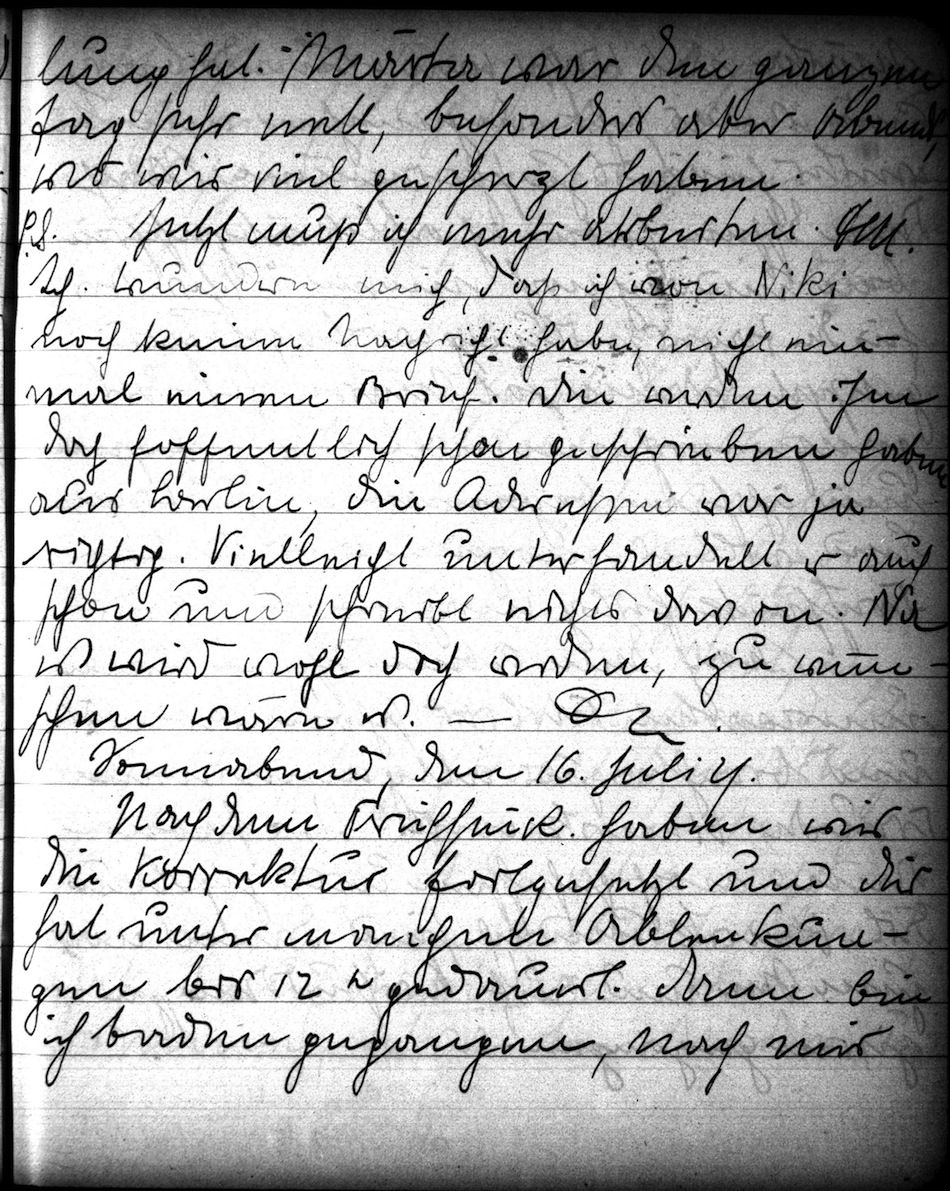 lung hat. Märta war den ganzen
Tag sehr nett, besonders aber Abend,
wo wir viel gescherzt haben.
P.S. Jetzt muß ich mehr arbeiten.
Ich wundere mich, daß ich von Niki
noch keine Nachricht habe, nicht ein-
mal einen Brief. Sie werden ihm
doch hoffentlich schon geschrieben haben
aus Berlin, die Adresse war ja
richtig. Vielleicht unterhandelt er auch
schon und schreibt nichts davon. Na
es wird wohl doch werden, zu wün-
schen wäre es. —
Sonnabend, den 16. Juli 21.
Nach dem Frühstück haben wir
die Korrektur fortgesetzt und die
hat unter manchen Ablenkun-
gen bis 12 h gedauert. Dann bin
ich baden gegangen, nach mir